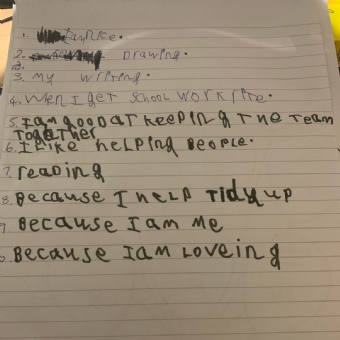 1. I am nice.
2. Drawing.
3. My writing.
4. When I get school work rite.
5. I am good at keeping the team
together
6. I like helping people.
7. reading
8. Because I help tidy up
9. Because I am me
Because I am loveing